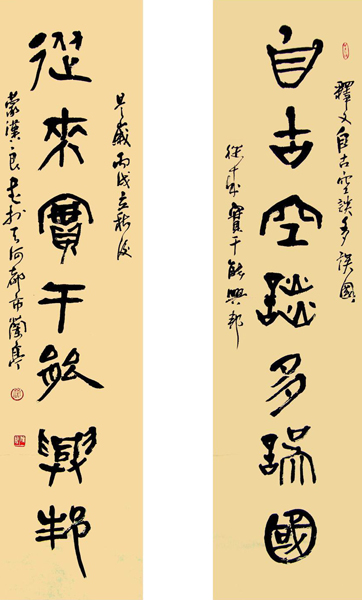 釋文自古空談多誤國
自古空談多誤國
從来實干能興邦
歲丙戌立秋後
從來實干能興邦
蒙漢良書於天河都市蘭亭